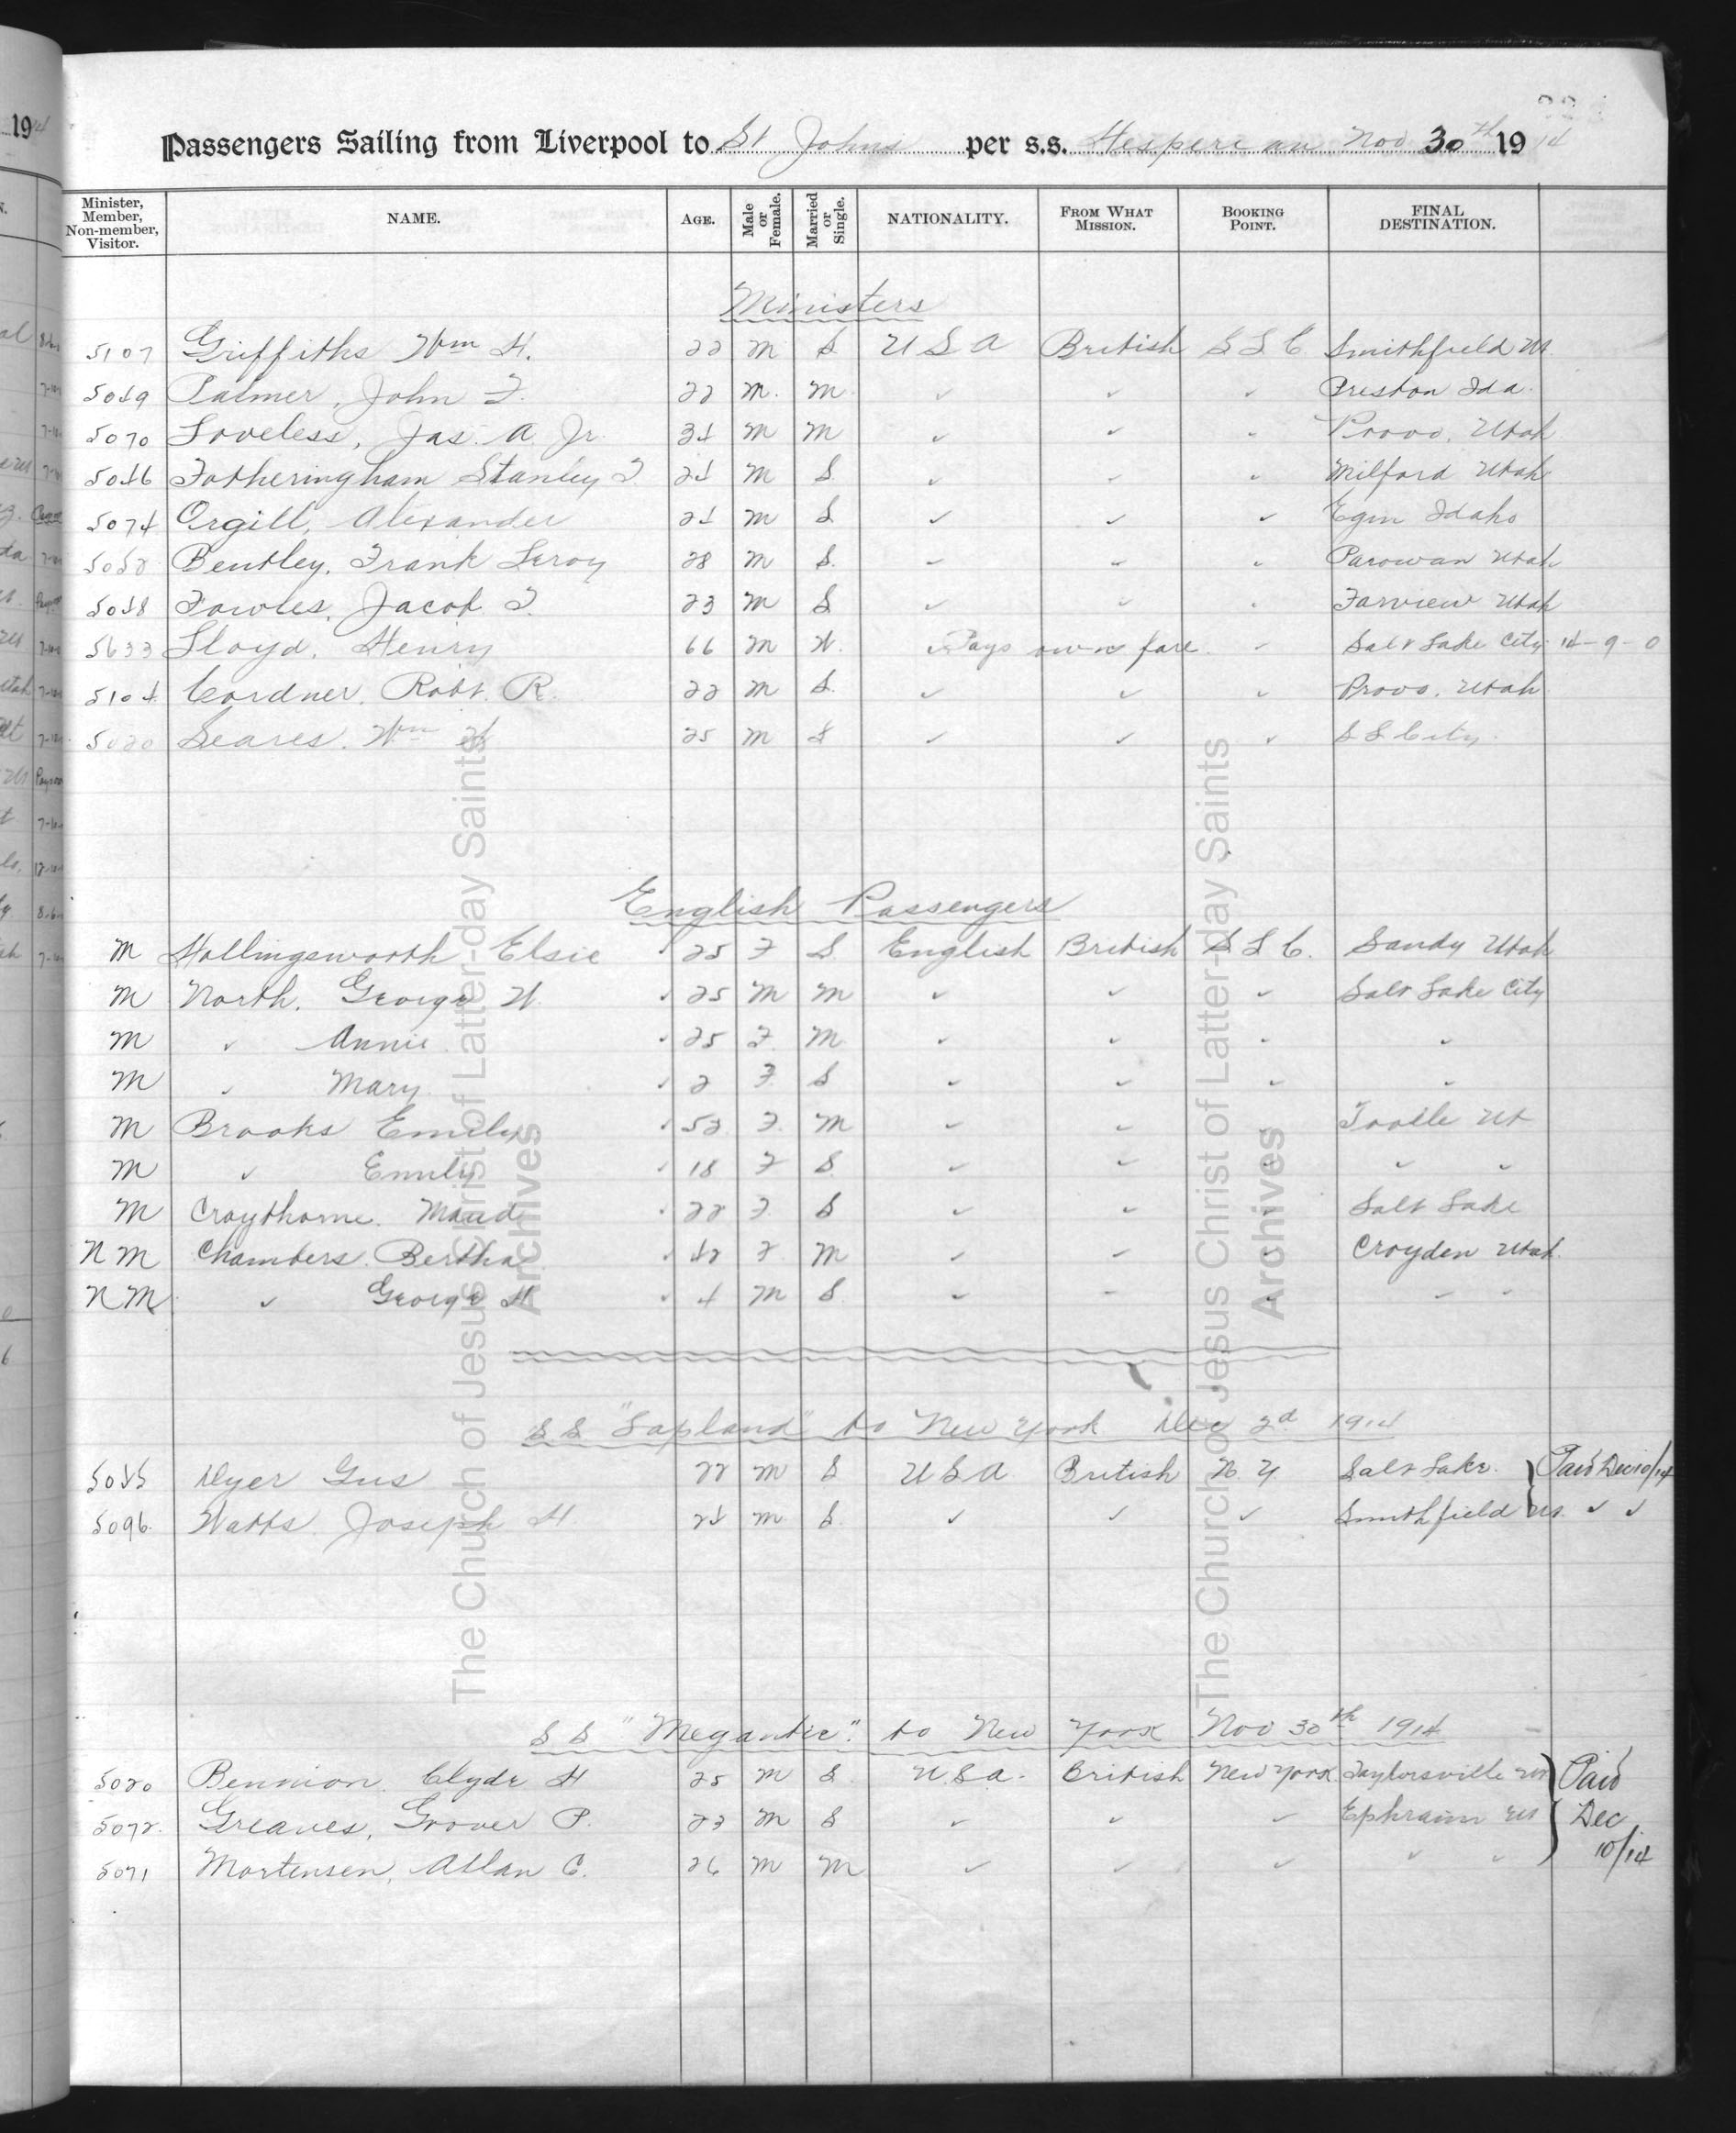 Passengers Sailing from Liverpool to St Johns per s.s. Hesperian Nov 30th 1914
Minister, Member, Non-member, Visitor. NAME. AGE. Male or Female. Married or Single. NATIONALITY. FROM WHAT MISSION. BOOKING POINT. FINAL DESTINATION.
Ministers
5107 Griffiths Wm H. 22 M S. U S A British S L C Smithfield Ut
5049 Palmer, John F. 22 M. M. ✓ ✓ ✓ Preston Ida.
5070 Loveless, Jas. A. Jr. 34 M M ✓ ✓ ✓ Provo, Utah
5046 Fotheringham Stanley 24 M S. ✓ ✓ ✓ Milford Utah
5074 Orgill, Alexander 24 M S ✓ ✓ ✓ Egin Idaho
Bentley, Frank Leroy 28 M S. ✓ ✓ ✓ Parowan Utah
5048 Fowles, Jacob T. 23 M S ✓ ✓ ✓ Farview Utah
5633 Lloyd, Henry 66 M W. ✓ Pays own fare. ✓ Salt Lake City 14-9-0
5104 Cordner, Robt. R. 22 M S. ✓ ✓ ✓ Provo, Utah
Seares, Wm H 25 M S ✓ ✓ ✓ S L City.
English Passengers
M Hollingsworth Elsie 25 F S. English British S L C. Sandy Utah
M North, George W. 25 M M ✓ ✓ ✓ Salt Lake City
M ✓ Annie 25 F. M ✓ ✓ ✓ ✓
M ✓ Mary 2 F. S ✓ ✓ ✓ ✓
M Brooks Emily 52 F. M ✓ ✓ Tooele Ut
M ✓ Emily 18 F S. ✓ ✓ ✓ ✓
M Craythorne. Maud 22 F. S ✓ ✓ Salt Lake
N M Chambers. Bertha 42 F. M ✓ ✓ Croyden Utah.
N M ✓ George H 4 M S. ✓ ✓ ✓ ✓
S S "Lapland" to New York Dec 2d 1914
5045 Dyer Gus 22 M S U S A British N. Y. Salt Lake. Paid Dec 10/14
5096. Watts Joseph H 24 M S. ✓ ✓ ✓ Smithfield Ut. ✓ ✓
S S "Megantic" to New York Nov 30th 1914
5020 Bennion. Clyde H 25 M S U.S.A. British New York Taylorsville Ut Paid
5072. Greaves, Grover P. 23 M S ✓ ✓ ✓ Ephraim Ut Dec
5071 Mortensen, Allan C. 26 M M ✓ ✓ ✓ ✓ ✓ 10/14
The Church of Jesus Christ of Latter-day Saints
Archives
The Church of Jesus Christ of Latter-day Saints
Archives